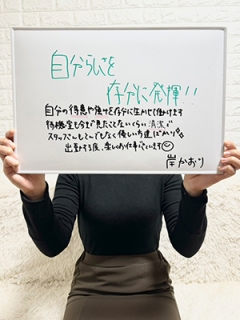 自分らしさを
存分に発揮!!
自分の得意や強みを存分に生かせて働けます
待機室も今まで見たことないくらい清潔で
スタッフさんもとってもなく優しい方達ばかり
出勤する度、楽しくお仕事でいています
岸かおり